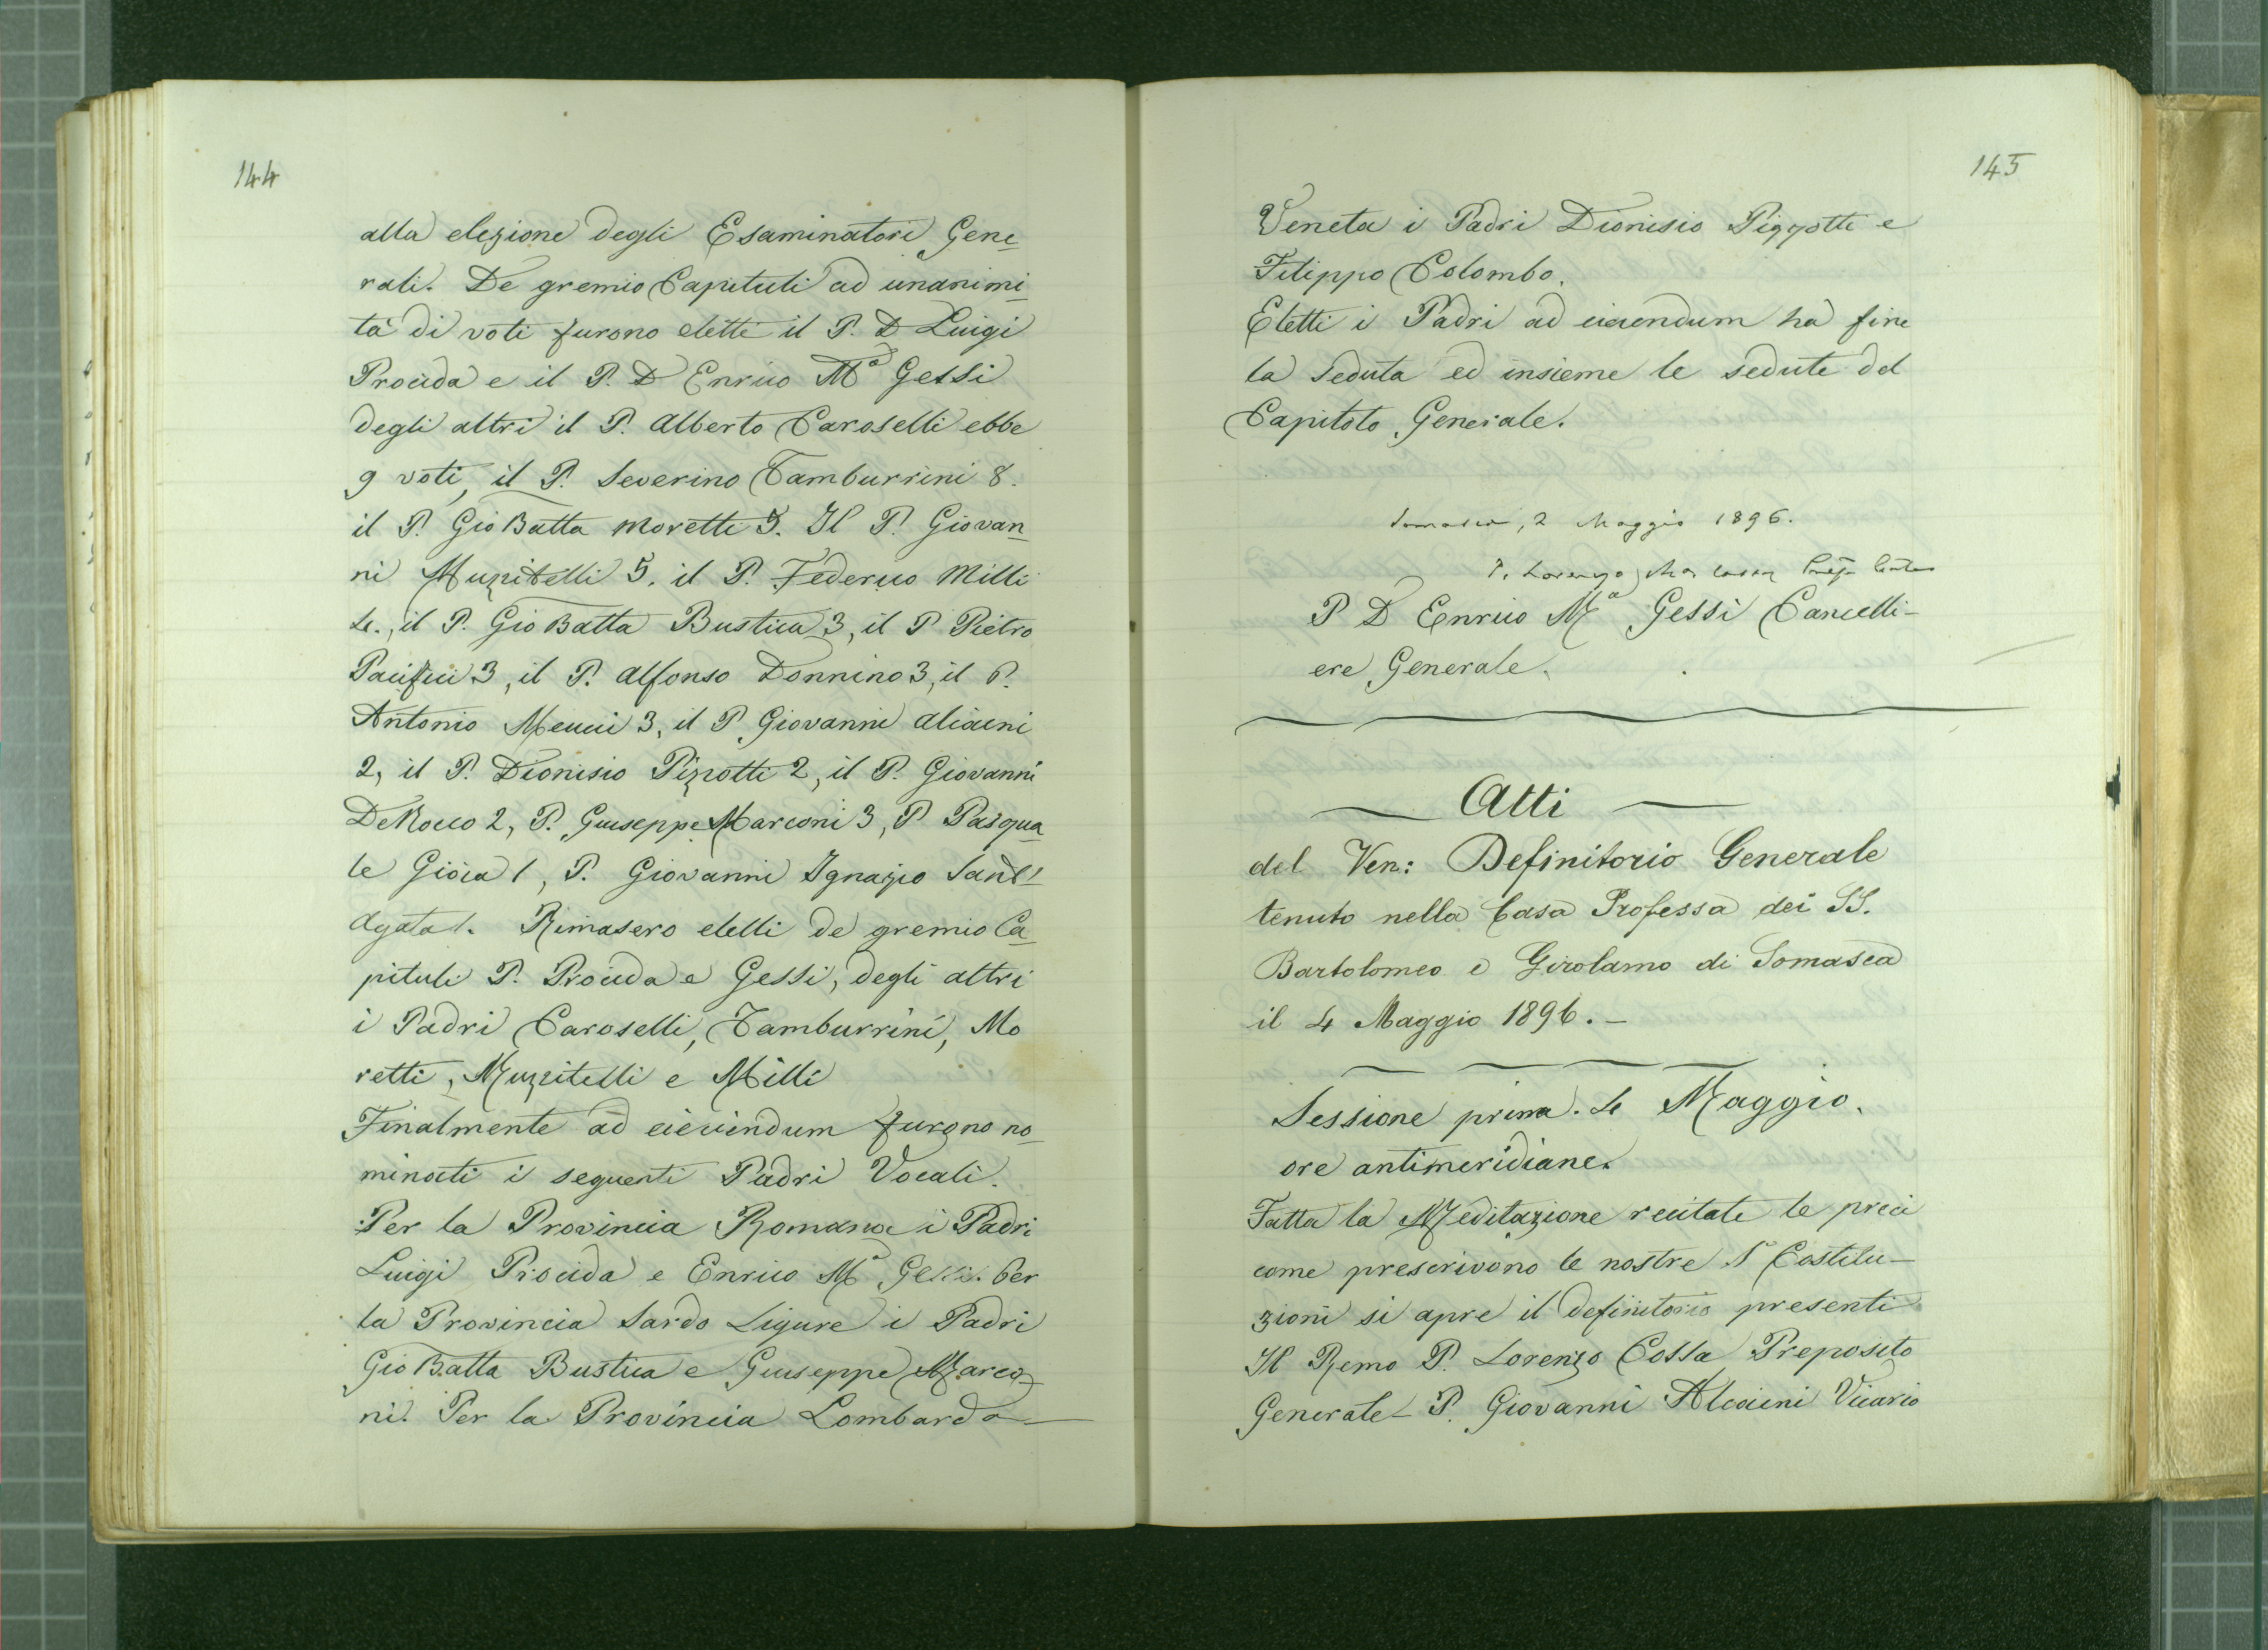 144
alla elezione degli Esaminatori Gene
rali. De gremio Capituli ad unanimi
tà di voti furono eletti il P. D Luigi
Procida e il P. D Enrico Mª Gessi
degli altri il P. Alberto Caroselli ebbe
9 voti, il P. Severino Tamburrini 8.
il P. Gio Batta Moretti 5. Il P. Giovan
ni Muzitelli 5. il P. Federico Milli
4., il P. Gio Batta Bustica 3, il P Pietro
Pacifici 3, il P. Alfonso Donnino 3, il P.
Antonio Meucci 3, il P. Giovanni Alcaini
2, il P. Dionisio Pizzotti 2, il P. Giovanni
De Rocco 2, P. Giuseppe Marconi 3, P Pasqua
le Gioia 1, P. Giovanni Ignazio Sant'
Agata 1. Rimasero eletti de gremio Ca
pituli P. Procida e Gessi, degli altri
i Padri Caroselli, Tamburrini, Mo
retti, Muzzitelli e Milli
Finalmente ad furono no
minati i seguenti Padri Vocali.
Per la Provincia Romana i Padri
Luigi Procida e Enrico Mª Gessi. Per
la Provincia Sardo Ligure i Padri
Gio Batta Bustica e Giuseppe Marco
ni. Per la Provincia Lombardo
145
Veneta i Padri Dionisio Pizzotti e
Filippo Colombo.
Eletti i Padri ad ha fine
la Seduta ed insieme le sedute del
Capitolo Generale.
Somasca, 2 Maggio 1896.
P. Lorenzo
P D Enrico Mª Gessi Cancelli-
ere Generale.
Atti
del Ven: Definitorio Generale
tenuto nella Casa Professa dei SS.
Bartolomeo e Girolamo di Somasca
il 4 Maggio 1896.-
Sessione prima. 4 Maggio.
ore antimeridiane.
Fatta la Meditazione recitate le preci
come prescrivono le nostre S Costitu-
zioni si apre il definitorio presenti
Il Rmo P. Lorenzo Cossa Preposito
Generale - P. Giovanni Alcaini Vicario